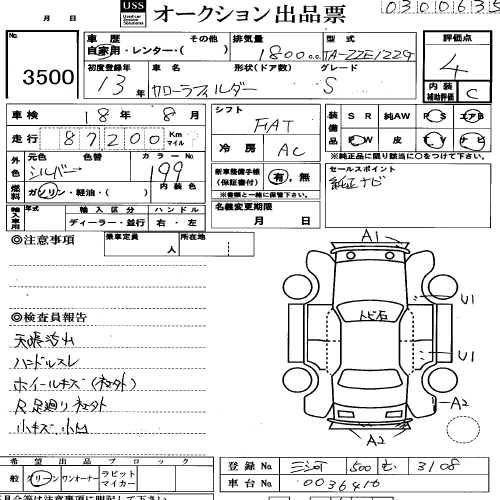 USS オークション出品票
月 日 030063
No. 3500
車歴 その他 自家用・レンター・( )
排気量 1800 c.c.
型式 TA-ZZE122G
評価点 4
初度登録年 13年
車名 カローラフィルダー
形状(ドア数)
グレード S
内装補助評価 C
車検 18年 8月
シフト FAT
装備品 S R 純AW P S エアB
P W 皮 T V ナビ
※純正品に限り該当に○をつけて下さい
走行 87200 Km マイル
冷房 AC
外色 元色 シルバー 色替 カラーNo. 199
燃料 ガソリン・軽油・( ) 内装色
新車整備手帳(保証書付) 有,無
※書類と一緒に保管下さい。
セールスポイント
純正ナビ
輸入車用 年式 輸入区分 ディーラー・並行 ハンドル 右・左
名義変更期限 月 日
◎注意事項
乗車定員 人
所在地
A1
U1
トビ石
U1
A2
A2
◎検査員報告
ハンドルスレ
小キズ 小凹
希望出品ブロック
一般 グリーン ワンオーナー ラビットマイカー
登録No. 三河 500 む 3108
車台No. 0036416